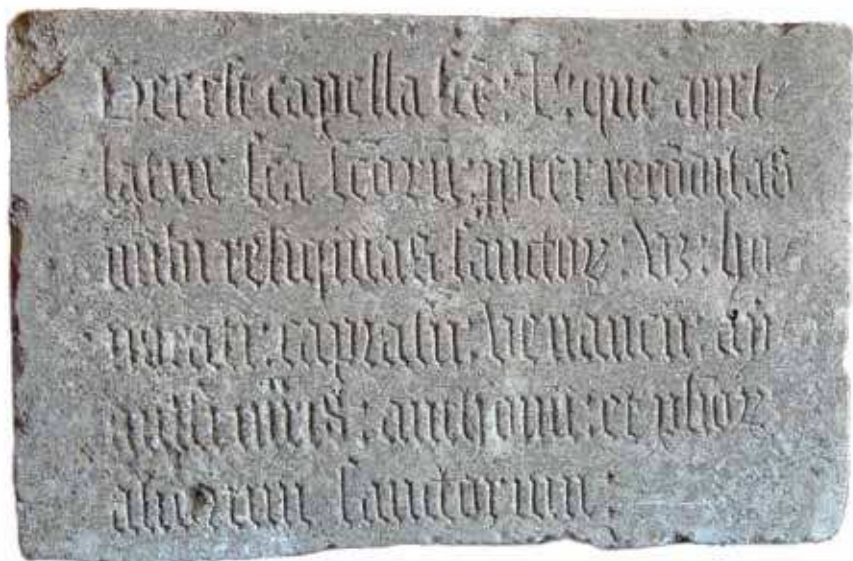 Hec est capella sc̄e : que appel-
latur sc̄a sc̄orū : ꝓpter recōditas
inibi reliquias sanctoꝝ : vꝫ : ho-
norati : caprasii : venancii :
mr̄is : anthonii : et
aliorum sanctorum :